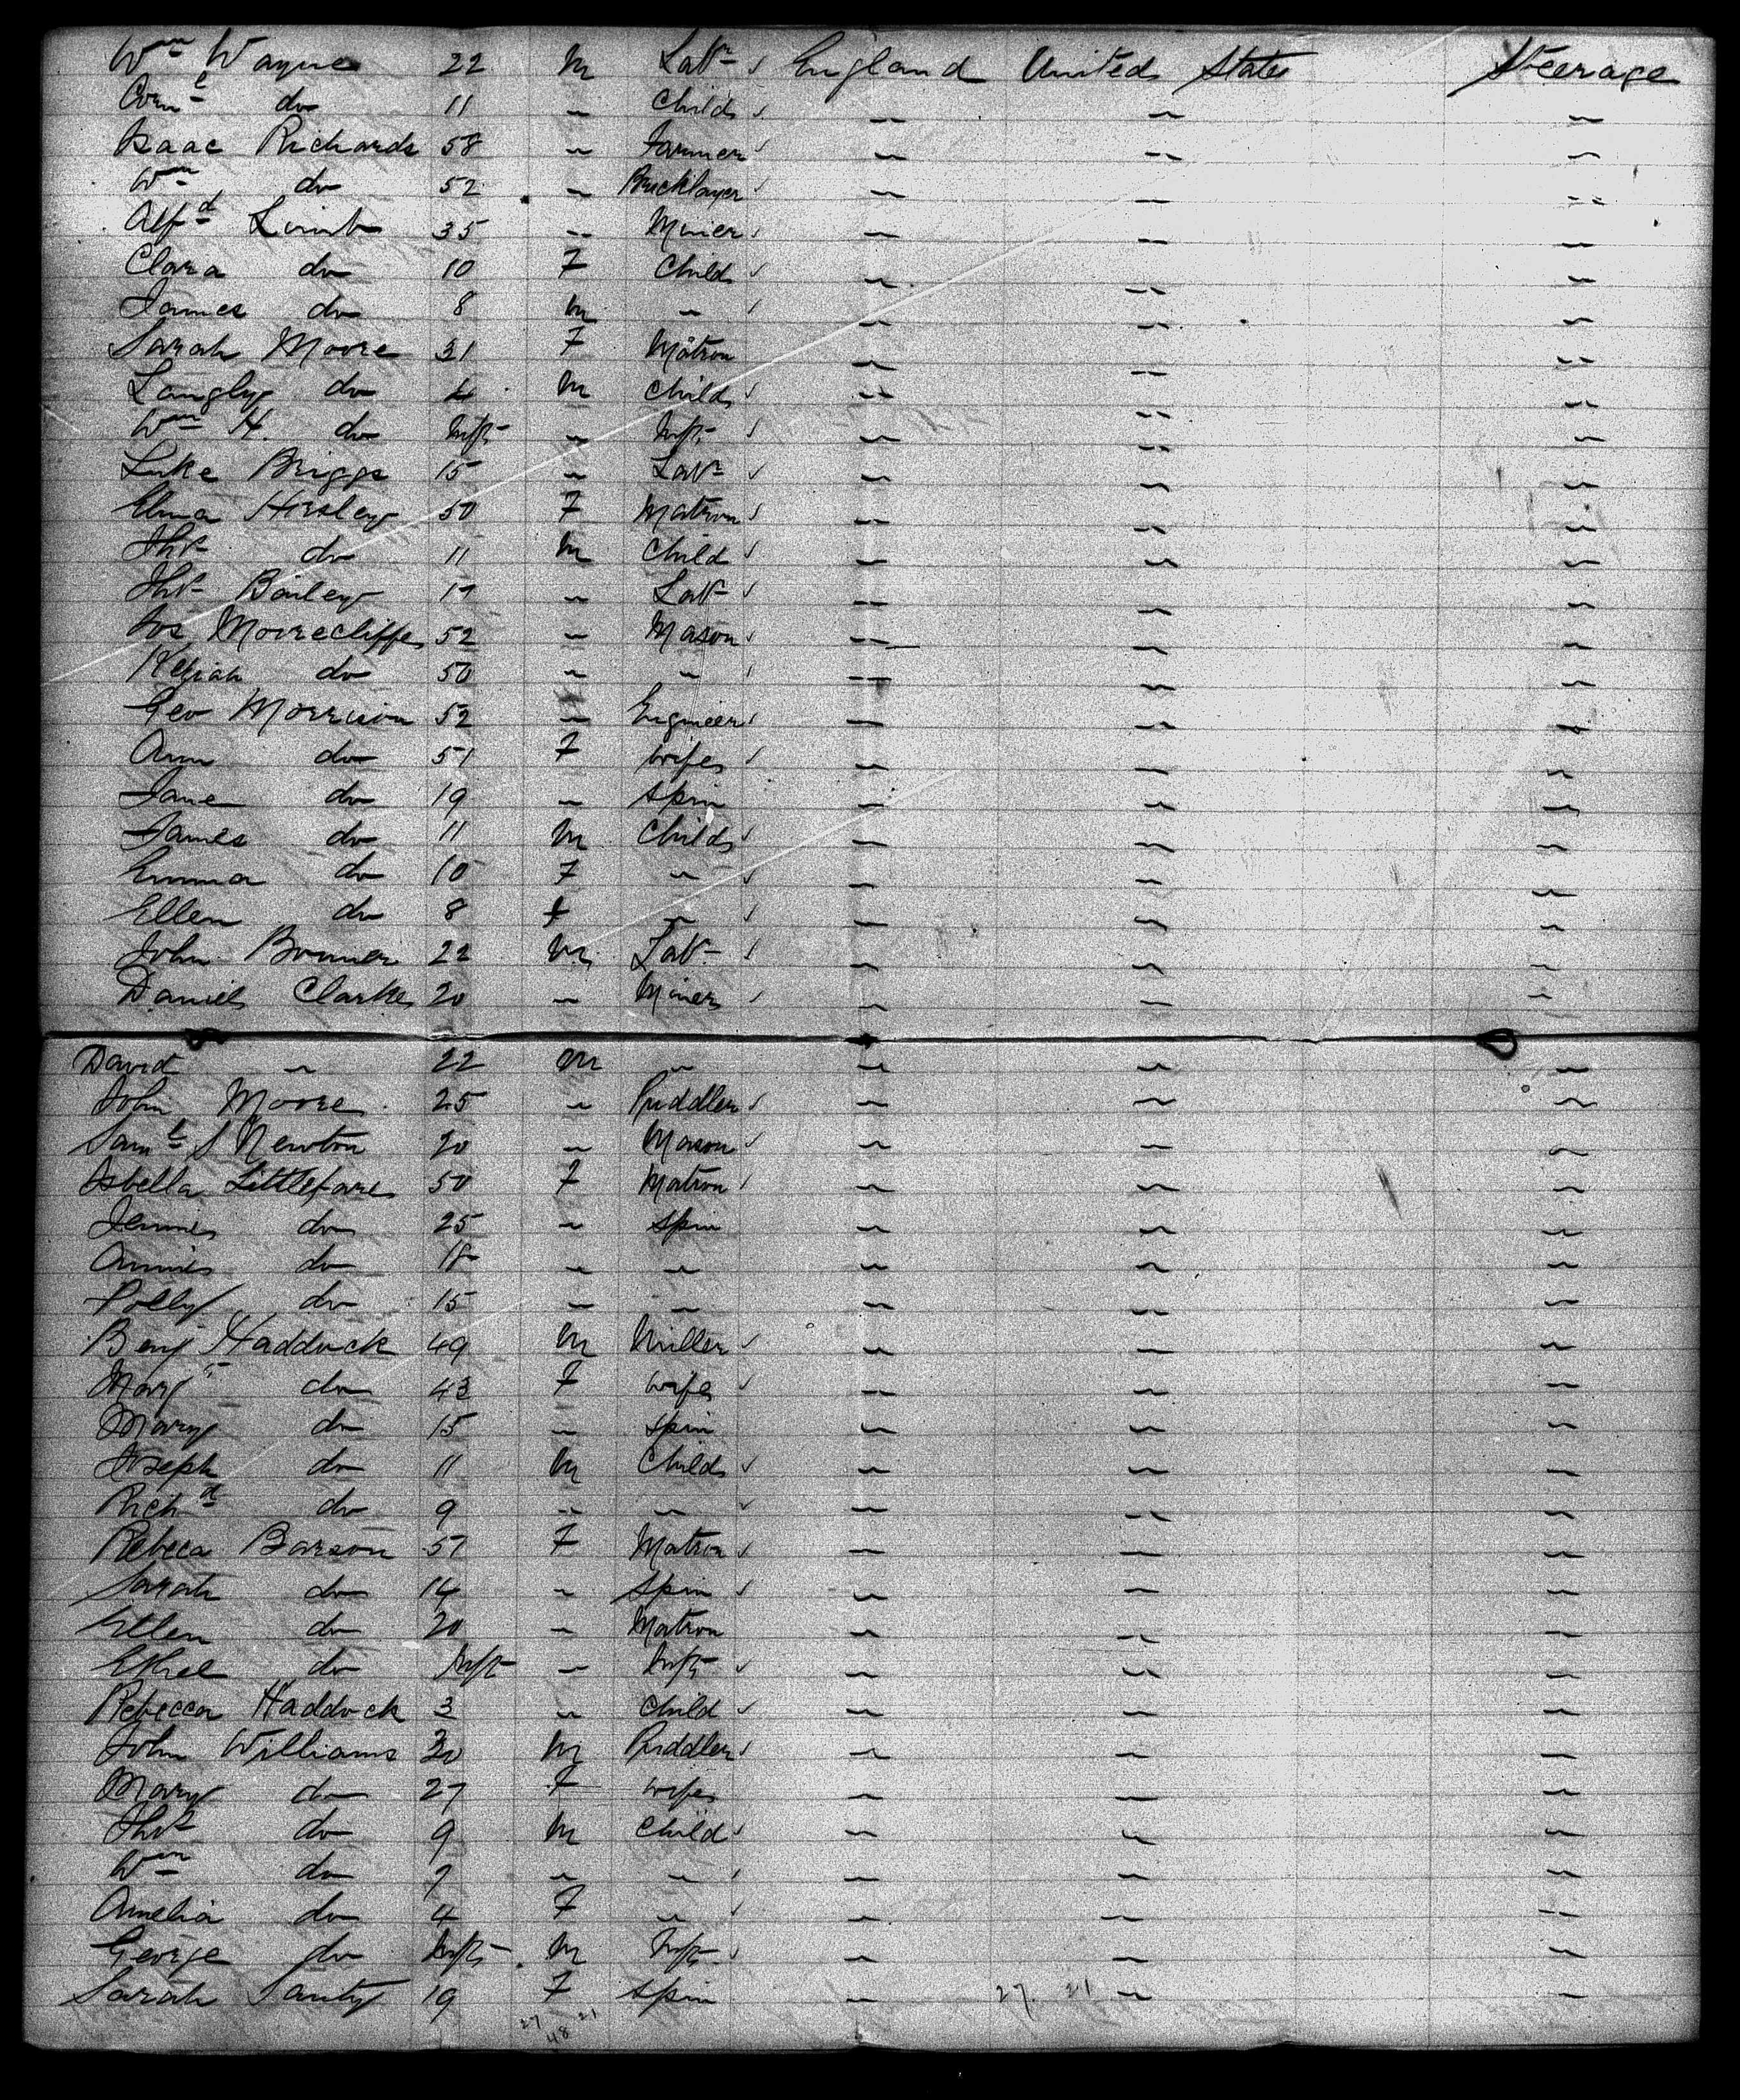 Wm Wayne 22 M Labr England United States Steerage
do 11 " Child " " "
Isaac Richards 58 " Farmer " " "
Wm do 52 " Bricklayer " " "
Alfd Limb 35 " Miner " " "
Clara do 10 F Child " " "
James do 8 M " " " "
Sarah Moore 31 F Matron " " "
Langly do 4 M Child " " "
Wm H. do Inft " Inft " " "
Luke Briggs 15 " Labr " " "
Elma Hirsley 50 F Matron " " "
Thos do 11 M Child " " "
Thos Bailey " Labr " " "
Jos Moorecliffe 52 " Mason " " "
Keziah do 50 " " " " "
Geo Morrison 52 " Engineer " " "
Ann do 51 F Wife " " "
Jane do 19 " Spin " " "
James do 11 M Child " " "
Emma do 10 F " " " "
Ellen do 8 f " " " "
John Bonner 22 M Labr " " "
Daniel Clarke 20 " Miner " " "
David " 22 M " " " "
John Moore 25 " Puddler " " "
Saml S Newton 20 " Mason " " "
Isbella Littlefare 50 F Matron " " "
Jennie do 25 " Spin " " "
Annie do 18 " " " " "
Polly do 15 " " " " "
Benj Haddock 49 M Miller " " "
Mary do 43 F Wife " " "
Mary do 15 " Spin " " "
Joseph do 11 M Child " " "
Richd do 9 " " " " "
Rebeca Barson 57 F Matron " " "
Sarah do 14 " Spin " " "
Ellen do 20 " Matron " " "
Ethel do Inft " Inft " " "
Rebecca Haddock 3 " Child " " "
John Williams 30 M Puddler " " "
Mary do 27 F Wife " " "
Thos do 9 M Child " " "
Wm do 7 " " " " "
Amelia do 4 F " " " "
George do Inft M Inft " " "
Sarah Santy 19 F Spin " 27. 21 " "
27 21
48